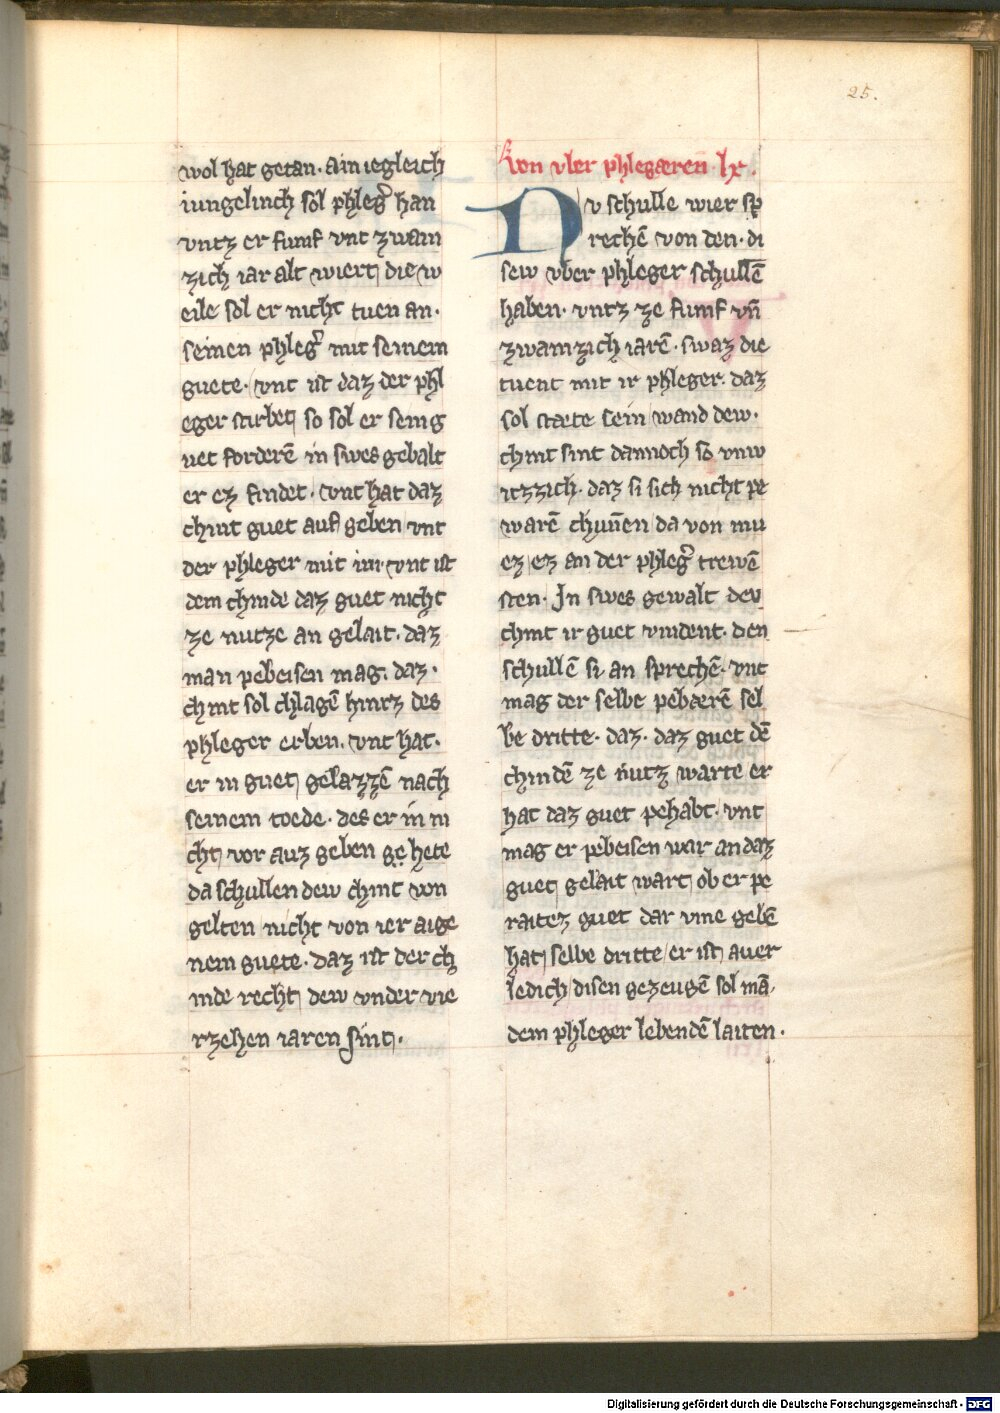 25.
wol hat getan· ain iegleich
iungelinch sol phleg̃ han
vntz er fumf vnt zwain
zich iar alt wiert die w
eile sol er nicht tuen an·
seinen phleg̃ mit seinem
guete· vnt ist daz der phl
eger stirbet so sol er sein g
uet forderē in swes gebalt
er ez findet· vnt hat daz
chint guet auf geben vnt
der phleger mit im· vnt ist
dem chinde daz guet nicht
ze nutze an gelait· daz
man pebeisen mag· daz·
chint sol chlagē hintz des
phleger erben· vnt hat·
er in guet gelazzē nach
seinem toede· des er in ni
cht vor auz geben ge hete
da schullen dew chint von
gelten nicht von ier aige
nem guete· daz ist der ch
inde recht dew vnder vie
rzehen iaren sint·
Von vber phlegæreñ lx·
Nv schulle wier sp
rechē von den· di
sew vber phleger schullē
haben· vntz ze fumf vñ
zwainzich iarē· swaz die
tuent mit ir phleger· daz
sol stæte sein wand dew·
chint sint dannoch so vnw
itzzich· daz si sich nicht pe
warē chunēn da von mu
ez ez an der phleg̃ trewē
sten· In swes gewalt dev
chint ir guet vindent· den
schullē si an sprechē· vnt
mag der selbe pebærē sel
be dritte· daz· daz guet dē
chindē ze nutz warte er
hat daz guet pehabt· vnt
mag er pebeisen war an daz
guet gelait wart ob er pe
raitez guet dar vme gebē
hat selbe dritte er ist auer
ledich disen gezeugē sol mā·
dem phleger lebendē laiten·
Digitalisierung gefördert durch die Deutsche Forschungsgemeinschaft - DFG